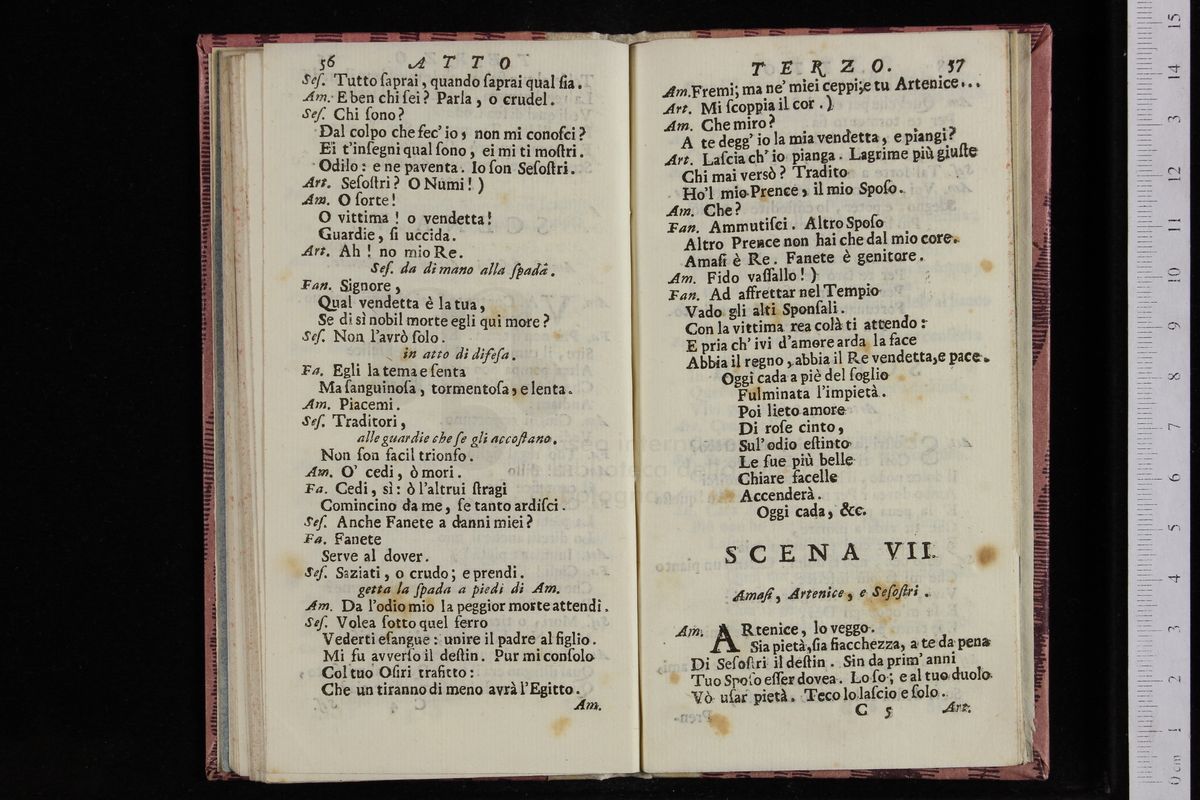 56 ATTO
Seſ. Tutto ſaprai, quando ſaprai qual ſia.
Am. E ben chi ſei? Parla, o crudel.
Seſ. Chi ſono?
Dal colpo che fec' io, non mi conoſci?
Ei t'inſegni qual ſono, ei mi ti moſtri.
Odilo: e ne paventa. Io ſon Seſoſtri.
Art. Seſoſtri? O Numi! )
Am. O ſorte!
O vittima! o vendetta!
Guardie, ſi uccida.
Art. Ah! no mio Re.
Seſ. da di mano alla ſpada.
Fan. Signore,
Qual vendetta è la tua,
Se di sì nobil morte egli qui more?
Seſ. Non l'avrò ſolo.
in atto di difeſa.
Fa. Egli la tema e ſenta
Ma ſanguinoſa, tormentoſa, e lenta.
Am. Piacemi.
Seſ. Traditori,
alle guardie che ſe gli accoſtano.
Non ſon facil trionfo.
Am. O' cedi, ò mori.
Fa. Cedi, sì: ò l'altrui ſtragi
Comincino da me, ſe tanto ardiſci.
Seſ. Anche Fanete a danni miei?
Fa. Fanete
Serve al dover.
Seſ. Saziati, o crudo; e prendi.
getta la ſpada a piedi di Am.
Am. Da l'odio mio la peggior morte attendi.
Seſ. Volea ſotto quel ferro
Vederti eſangue: unire il padre al figlio.
Mi fu avverſo il deſtin. Pur mi conſolo
Col tuo Oſiri trafitto:
Che un tiranno di meno avrà l'Egitto.
Am.
TERZO. 57
Am. Fremi; ma ne' miei ceppi; e tu Artenice...
Art. Mi ſcoppia il cor. )
Am. Che miro?
A te degg' io la mia vendetta, e piangi?
Art. Laſcia ch' io pianga. Lagrime più giuſte
Chi mai versò? Tradito
Ho'l mio Prence, il mio Spoſo.
Am. Che?
Fan. Ammutiſci. Altro Spoſo
Altro Prence non hai che dal mio core.
Amaſi è Re. Fanete è genitore.
Am. Fido vaſſallo! )
Fan. Ad affrettar nel Tempio
Vado gli alti Sponſali.
Con la vittima rea colà ti attendo:
E pria ch' ivi d'amore arda la face
Abbia il regno, abbia il Re vendetta, e pace.
Oggi cada a piè del ſoglio
Fulminata l'impietà.
Poi lieto amore
Di roſe cinto,
Sul' odio eſtinto
Le ſue più belle
Chiare facelle
Accenderà.
Oggi cada, &c.
SCENA VII.
Amaſi, Artenice, e Seſoſtri.
Am. ARtenice, lo veggo.
Sia pietà, ſia fiacchezza, a te da pena
Di Seſoſtri il deſtin. Sin da prim' anni
Tuo Spoſo eſſer dovea. Lo ſo; e al tuo duolo
Vò uſar pietà. Teco lo laſcio e ſolo.
C 5 Art.